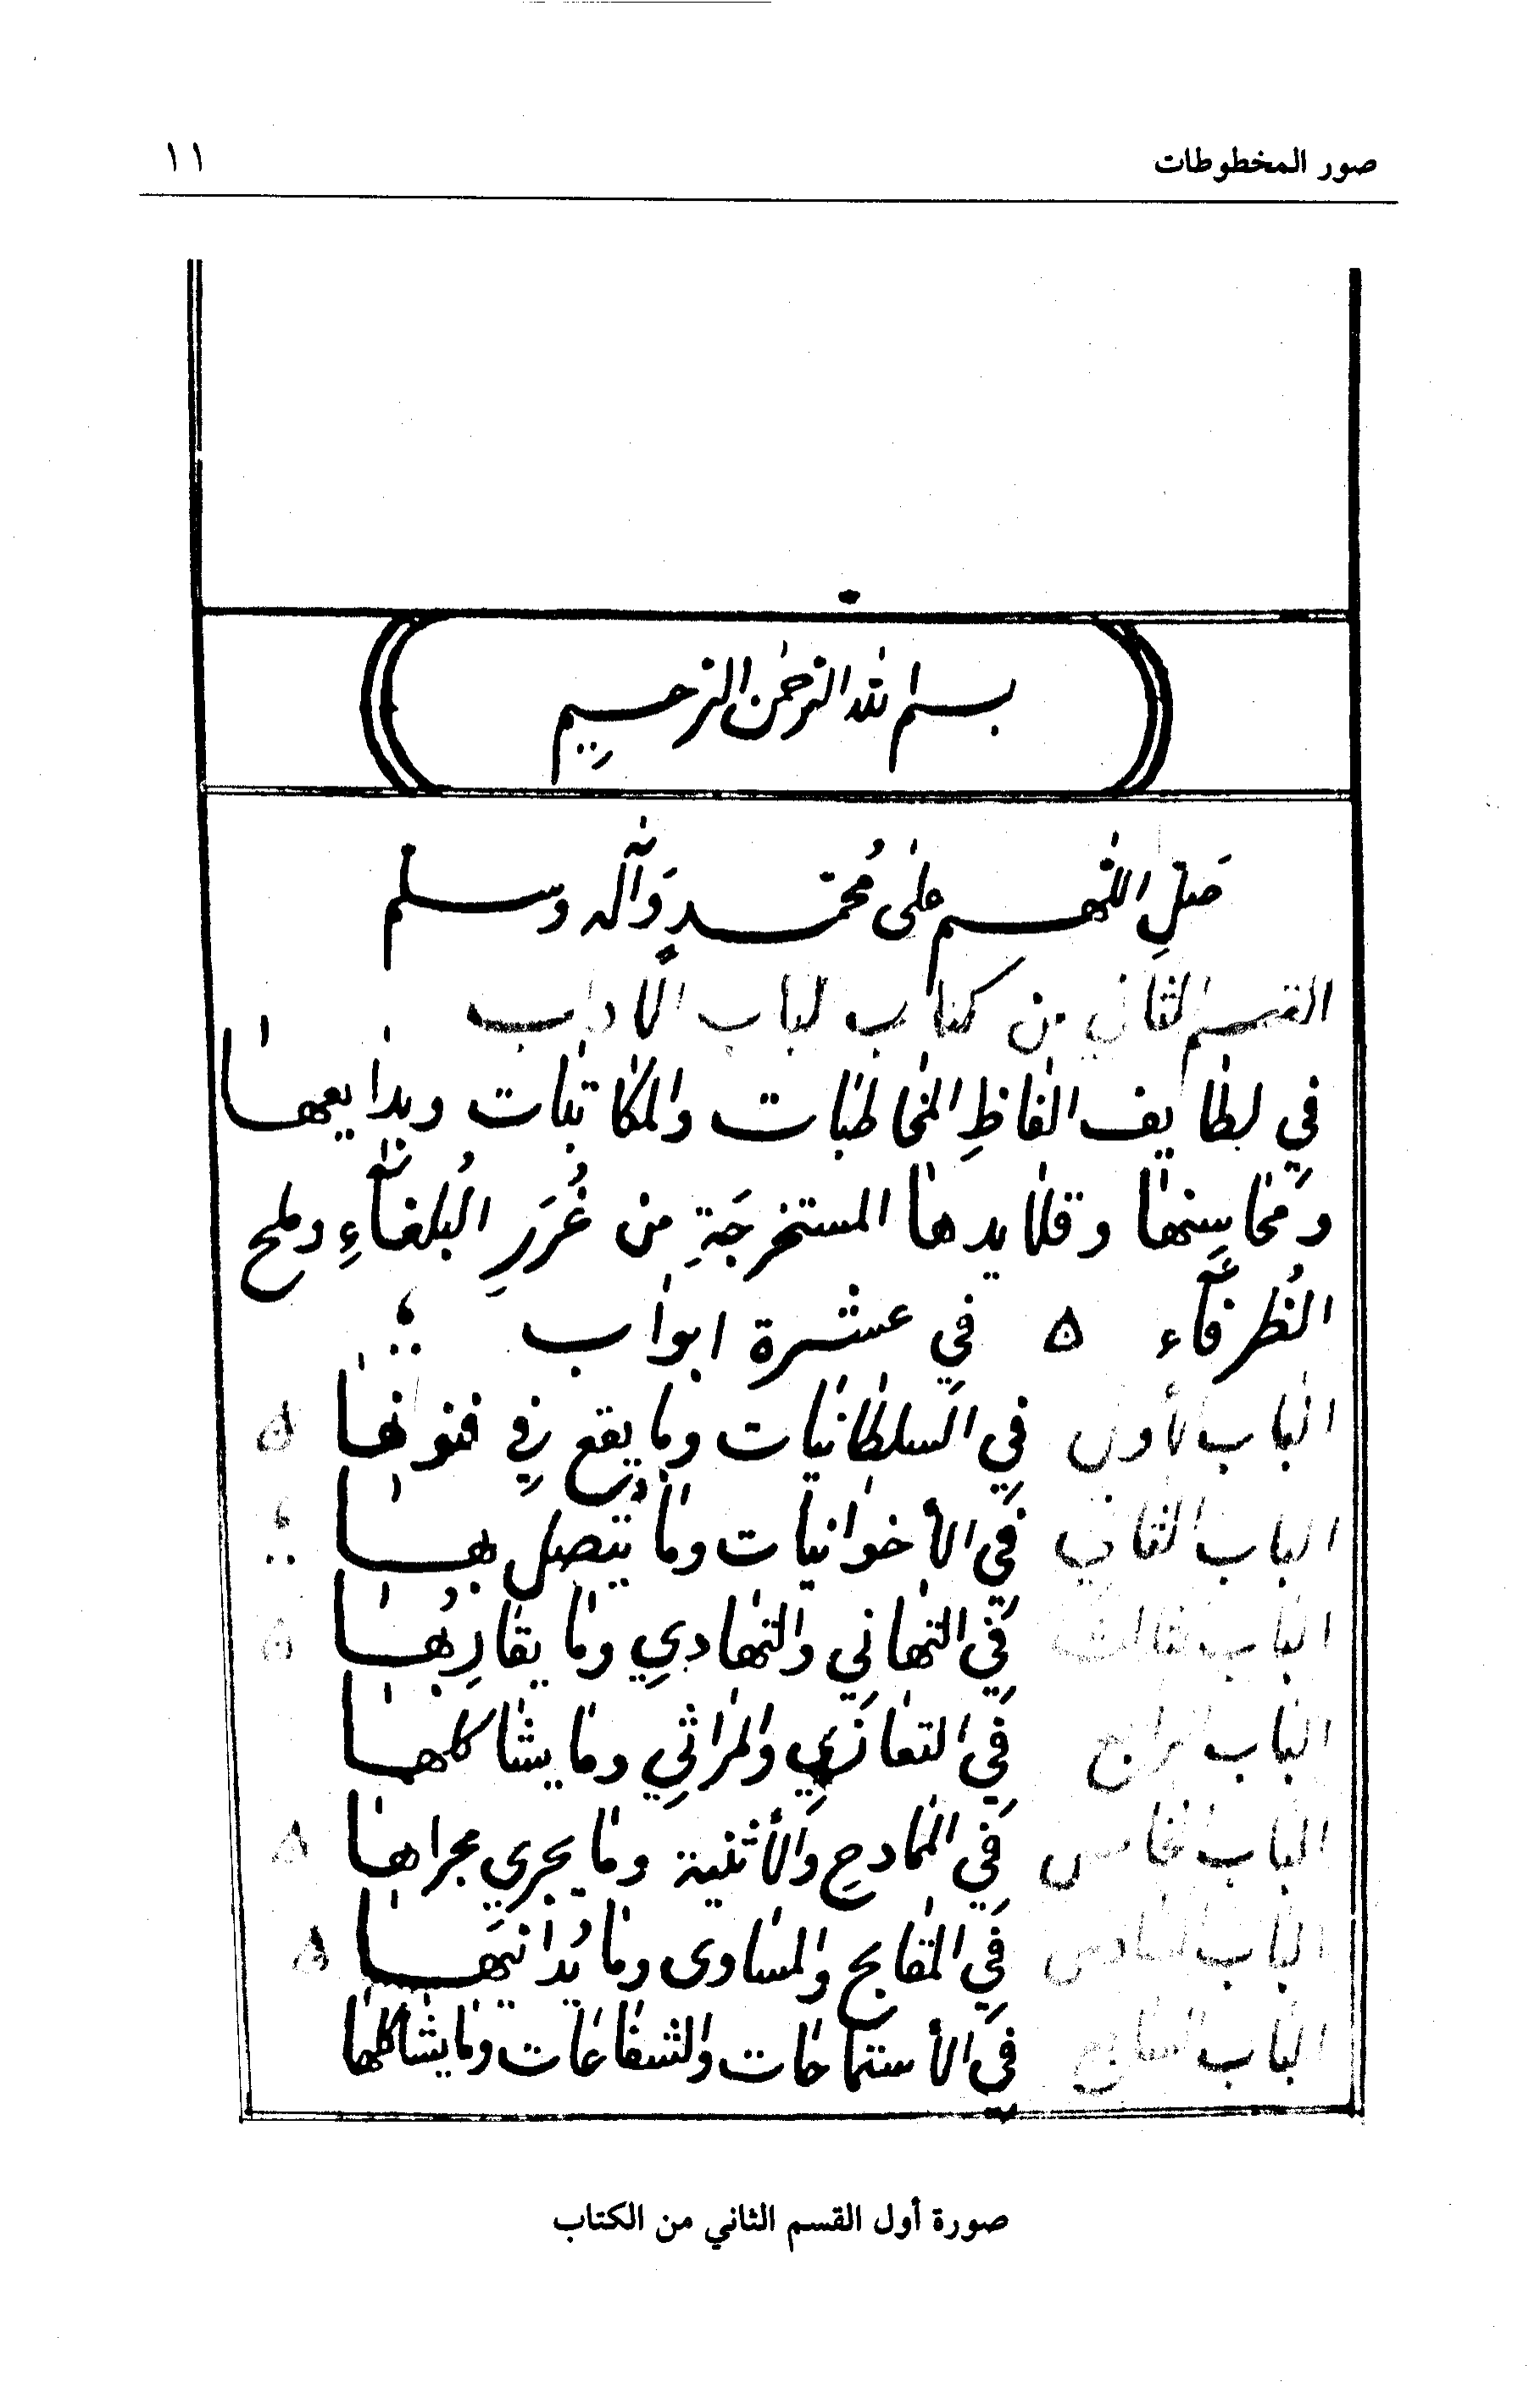 صور المخطوطات ١١
بسم الله الرحمن الرحيم
صَلِّ اللهم على مُحمّدٍ وَآله وسلم
القسم الثاني من كتاب لباب الاداب
في لطايف الفاظِ المخاطبات والمكاتبات وبدايعها
ومحاسِنها وقلايدها المستخرجَةِ من غُرَرِ البُلغاءِ وملح
الظُرفآء ه في عشرة ابواب
الباب الأول في السلطانيات وما يقع في فنونها ه
الباب الثاني في الأخوانيات وما يتصل بها
الباب الثالث في التهاني والتهادي وما يقارِبُها ه
الباب الرابع في التعازي والمراثي وما يشاكلها
الباب الخامس في الممادح والأثنية وما يجري مجراها ه
الباب السادس في المقابح والمساوى وما يُدانيَها ه
الباب السابع في الأستماحات والشفاعات وما يشاكلها
صورة أول القسم الثاني من الكتاب